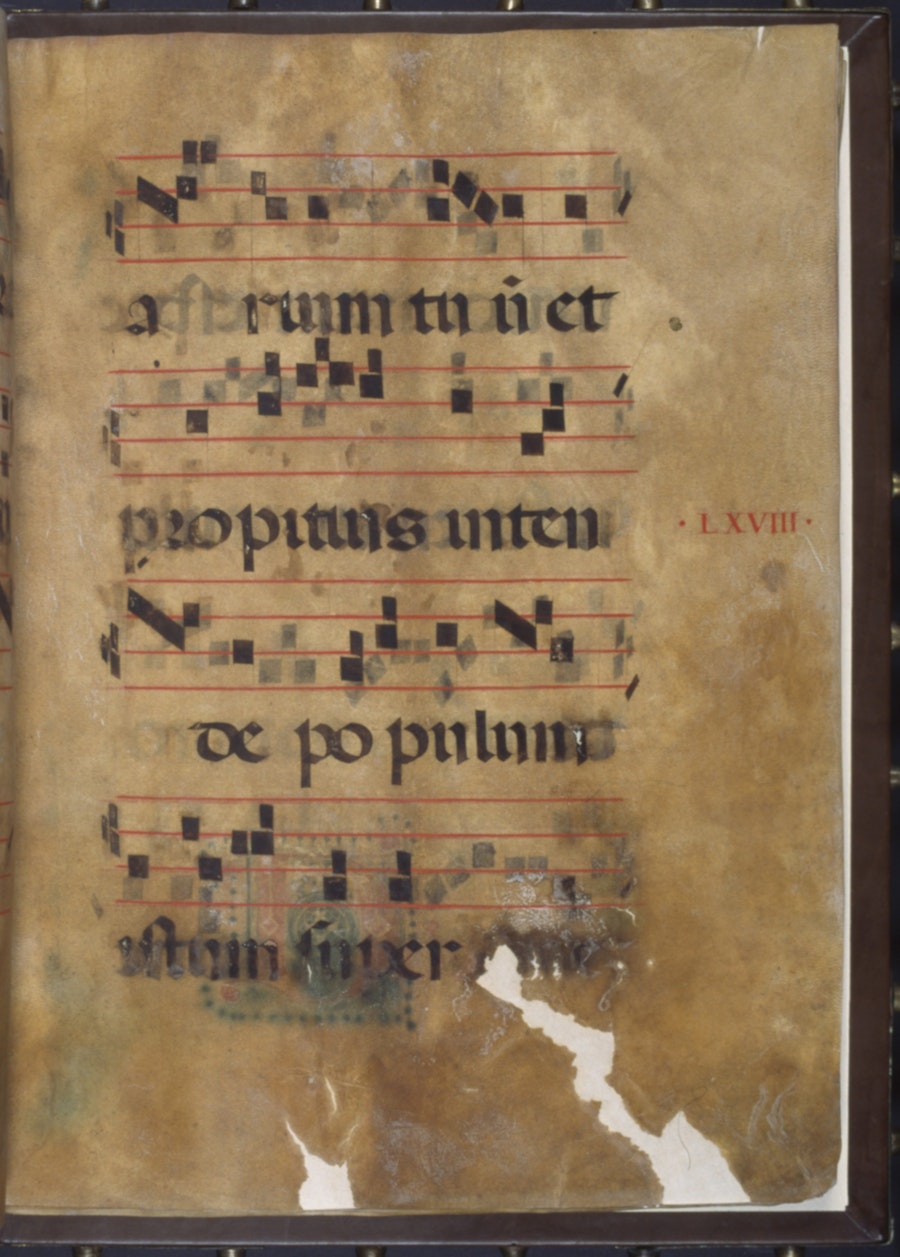 a rium tu ū et
propitius inten
· LXVIII ·
de populum
istum super